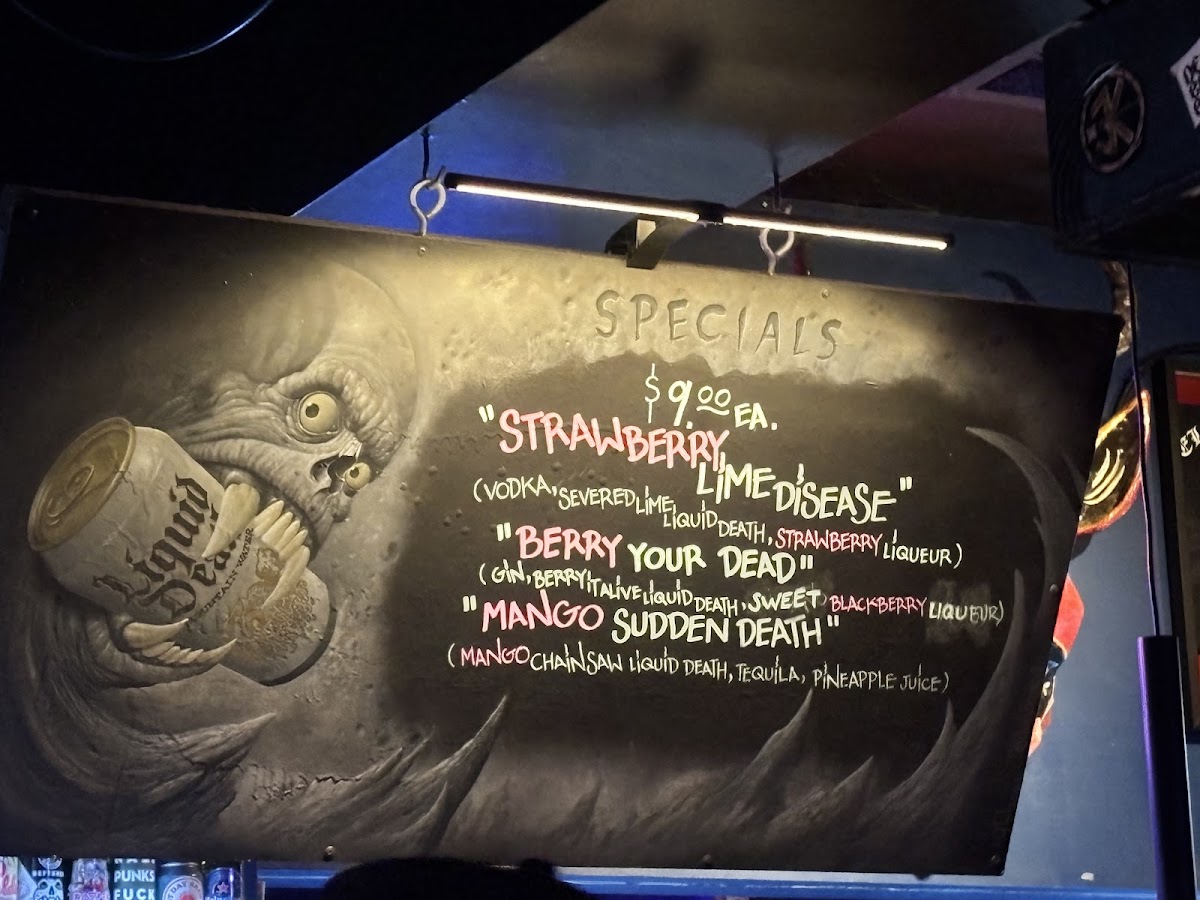 SPECIALS
$9.00 EA.
"STRAWBERRY,
LIME DISEASE"
(VODKA, SEVERED LIME LIQUID DEATH, STRAWBERRY LIQUEUR)
"BERRY YOUR DEAD"
(GIN, BERRY IT ALIVE LIQUID DEATH, SWEET BLACKBERRY LIQUEUR)
"MANGO SUDDEN DEATH"
(MANGO CHAINSAW LIQUID DEATH, TEQUILA, PINEAPPLE JUICE)
Liquid
Death
MOUNTAIN WATER
PUNKS
FUCK